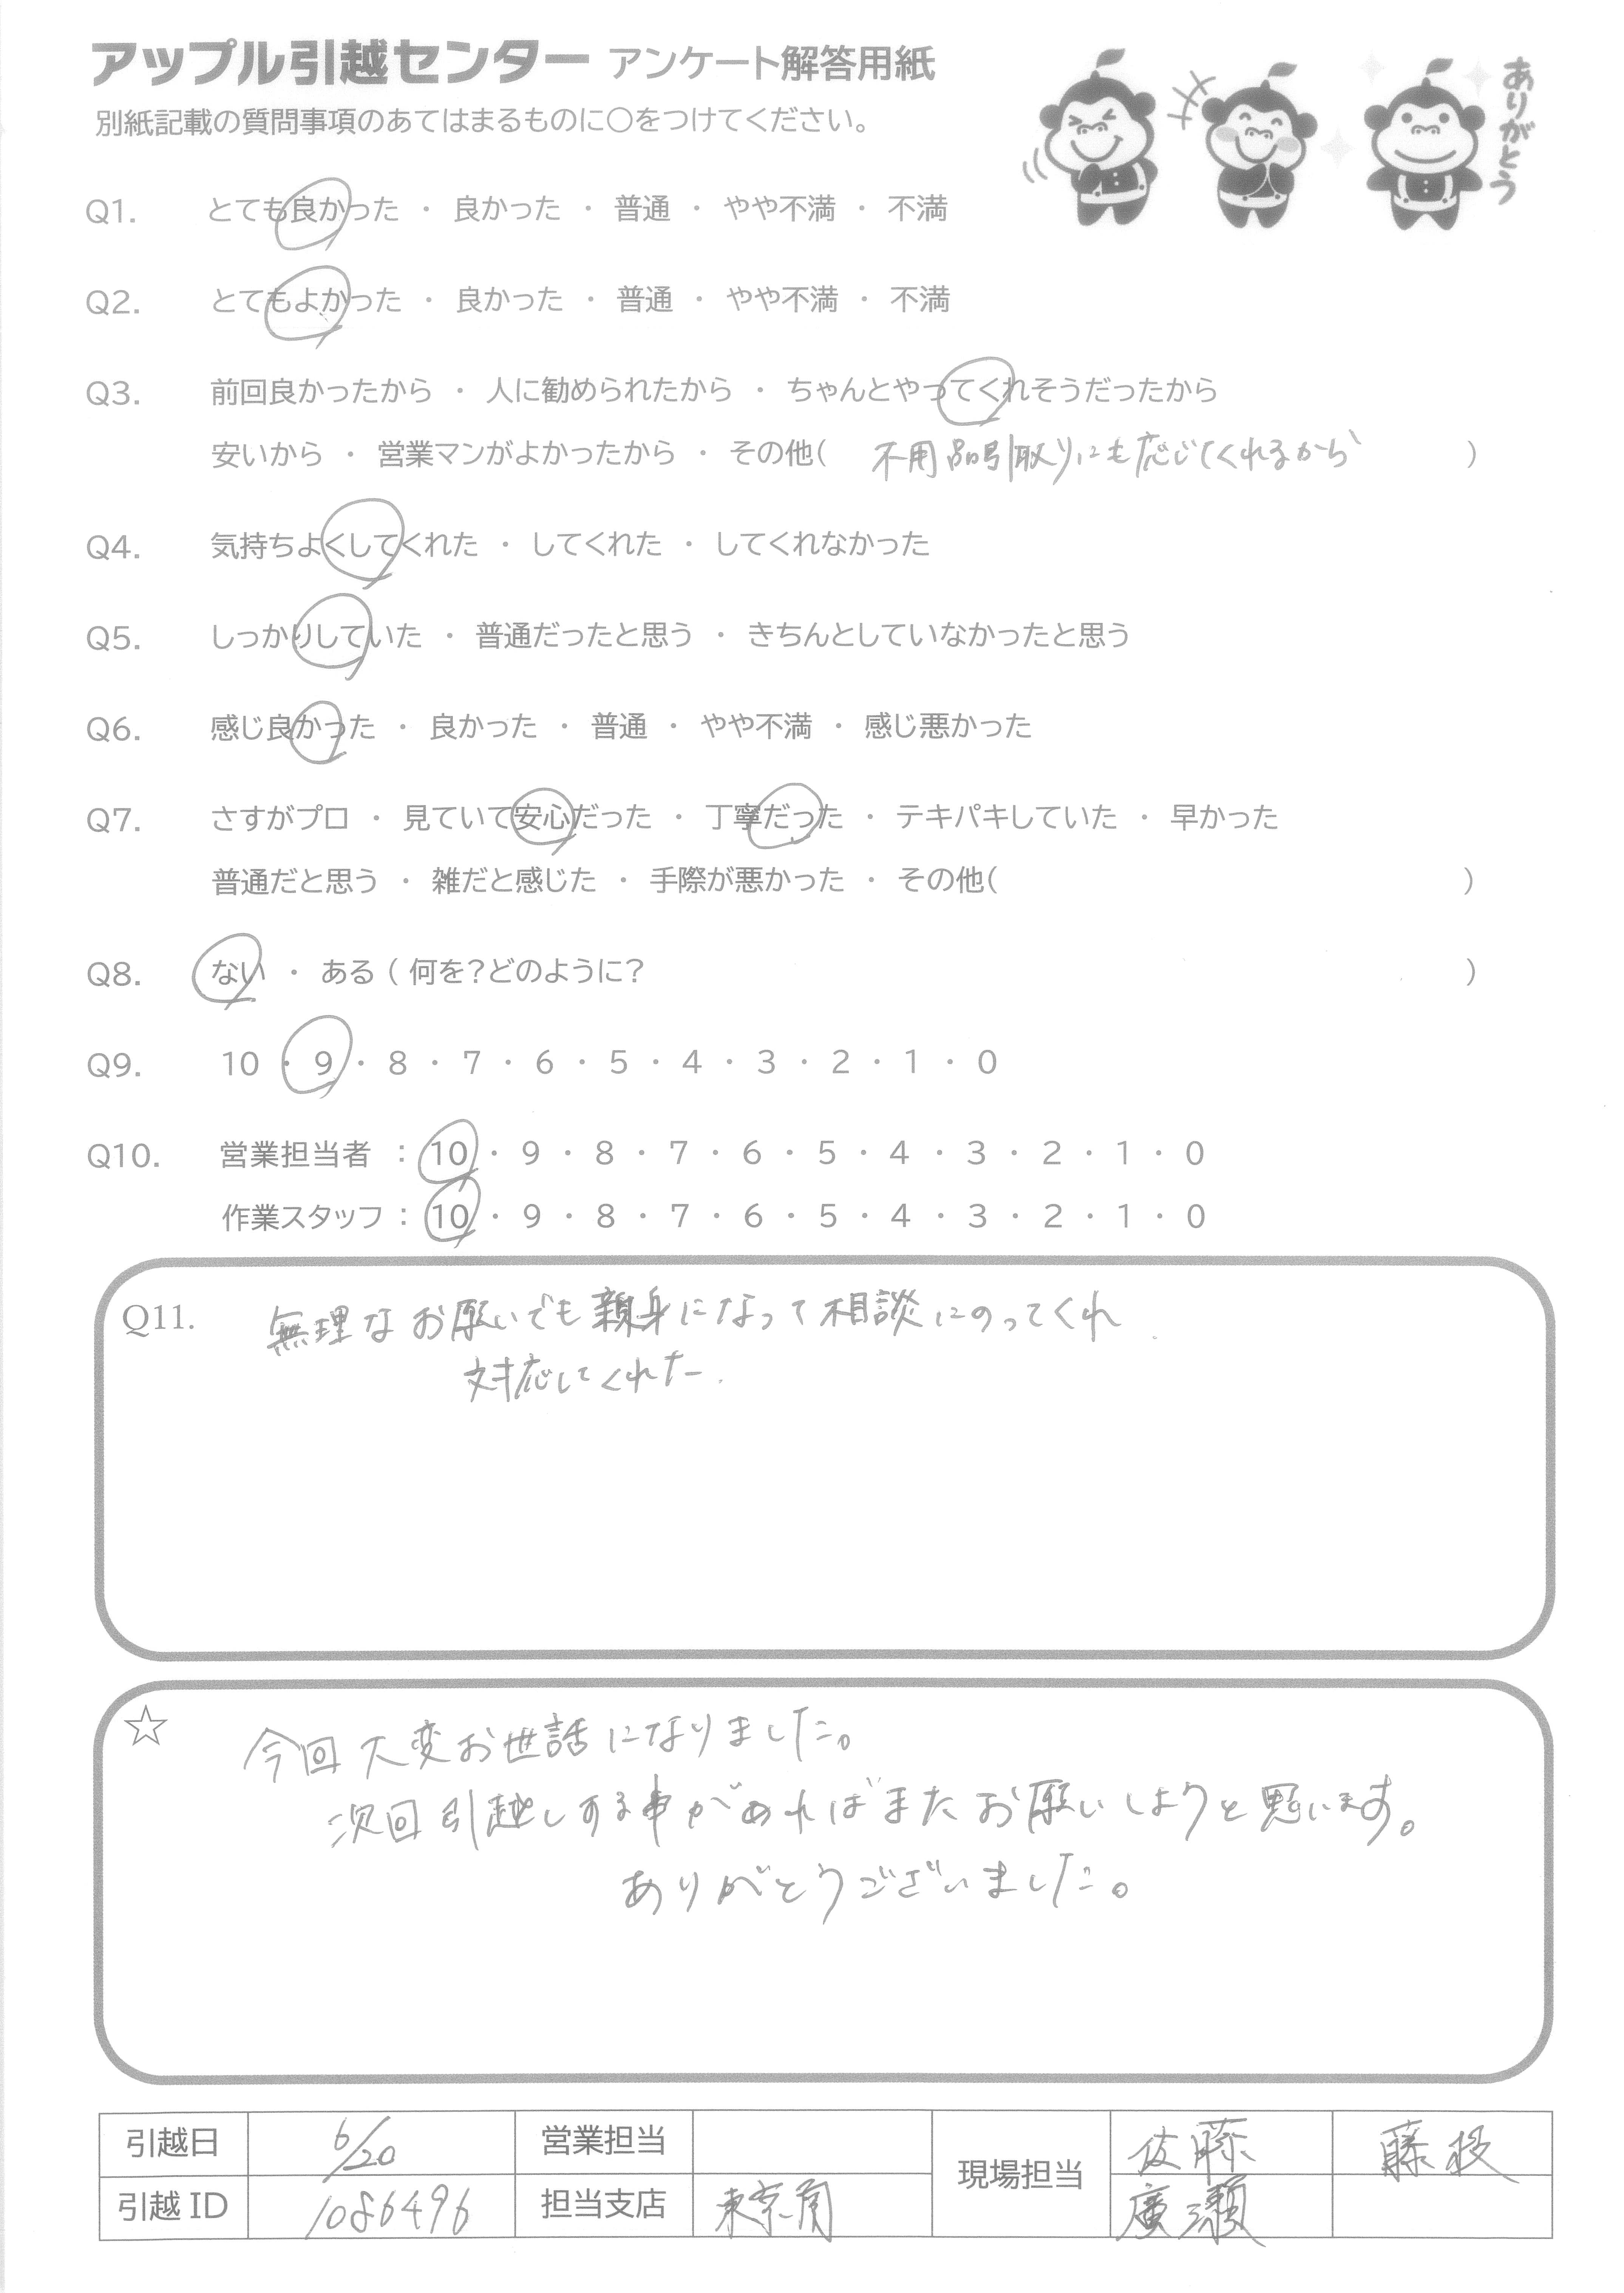 アップル引越センター アンケート解答用紙
ありがとう
別紙記載の質問事項のあてはまるものに○をつけてください。
Q1. とても良かった ・ 良かった ・ 普通 ・ やや不満 ・ 不満
Q2. とてもよかった ・ 良かった ・ 普通 ・ やや不満 ・ 不満
Q3. 前回良かったから ・ 人に勧められたから ・ ちゃんとやってくれそうだったから
安いから ・ 営業マンがよかったから ・ その他( 不用品引取りにも応じてくれるから )
Q4. 気持ちよくしてくれた ・ してくれた ・ してくれなかった
Q5. しっかりしていた ・ 普通だったと思う ・ きちんとしていなかったと思う
Q6. 感じ良かった ・ 良かった ・ 普通 ・ やや不満 ・ 感じ悪かった
Q7. さすがプロ ・ 見ていて安心だった ・ 丁寧だった ・ テキパキしていた ・ 早かった
普通だと思う ・ 雑だと感じた ・ 手際が悪かった ・ その他( )
Q8. ない ・ ある ( 何を?どのように? )
Q9. 10 ・ 9 ・ 8 ・ 7 ・ 6 ・ 5 ・ 4 ・ 3 ・ 2 ・ 1 ・ 0
Q10. 営業担当者 : 10 ・ 9 ・ 8 ・ 7 ・ 6 ・ 5 ・ 4 ・ 3 ・ 2 ・ 1 ・ 0
作業スタッフ : 10 ・ 9 ・ 8 ・ 7 ・ 6 ・ 5 ・ 4 ・ 3 ・ 2 ・ 1 ・ 0
Q11. 無理なお願いでも親身になって相談にのってくれ
対応してくれた.
☆ 今回大変お世話になりました。
次回引越しする事があればまたお願いしようと思います。
ありがとうございました。
引越日 6/20 営業担当 現場担当 佐藤
引越ID 1086496 担当支店 東京南 廣瀬